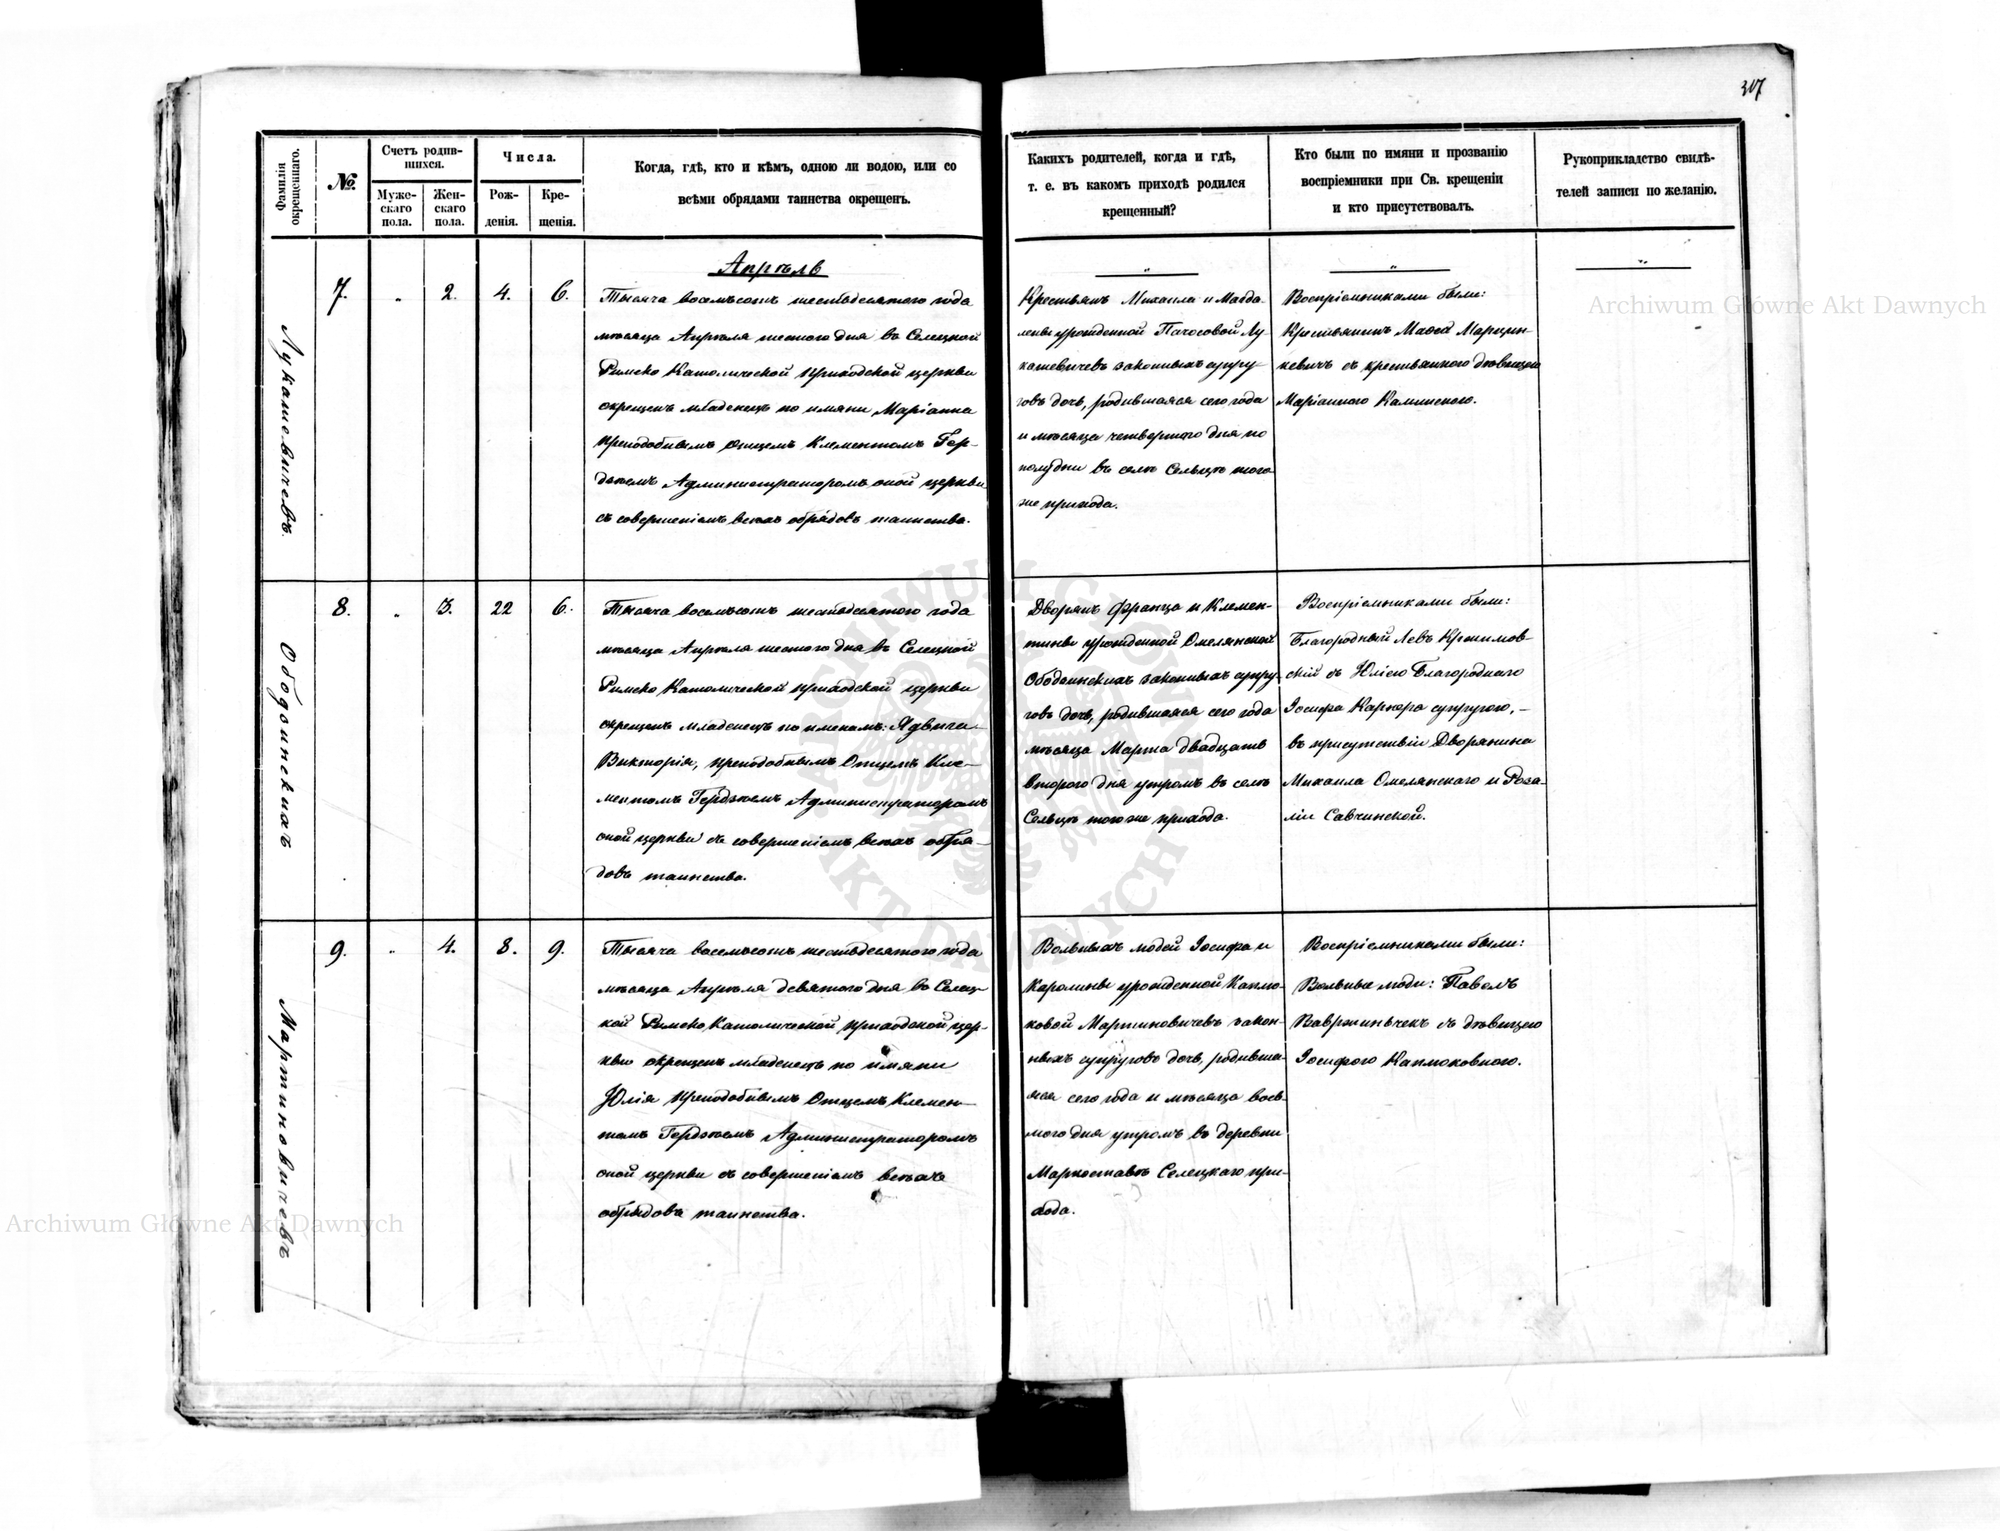 307
Фамилія окрещеннаго.
№.
Счетъ родив-
шихся.
Муже-
скаго
пола.
Жен-
скаго
пола.
Числа.
Рож-
денія.
Кре-
щенія.
Когда, гдѣ, кто и кѣмъ, одною ли водою, или со
всѣми обрядами таинства окрещенъ.
Какихъ родителей, когда и гдѣ,
т. е. въ какомъ приходѣ родился
крещенный?
Кто были по имяни и прозванію
воспріемники при Св. крещеніи
и кто присутствовалъ.
Рукоприкладство свидѣ-
телей записи по желанію.
Апрѣль
Лукашевичевъ.
7. „ 2. 4. 6.
Тысяча восемьсотъ шестьдесятого года
мѣсяца Апрѣля шестого дня въ Селецкой
Римско Католической приходской церкви
окрещенъ младенецъ по имяни Маріанна
преподобнымъ Отцемъ Клементомъ Гер-
дзѣемъ Администраторомъ оной церкви
съ совершеніемъ всѣхъ обрядовъ таинства.
Крестьянъ Михаила и Магда-
лены урожденной Пачосовой Лу-
кашевичевъ законныхъ супру-
говъ дочь, родившаяся сего года
и мѣсяца четвертого дня по
полудни въ селѣ Сельцѣ того
же прихода.
Воспріемниками были:
Крестьянинъ Матѳей Марцин-
кевичъ съ крестьянкого дѣвицею
Маріанного Калинского.
Ободзинскихъ
8. „ 3. 22 6.
Тысяча восемьсотъ шестьдесятого года
мѣсяца Апрѣля шестого дня въ Селецкой
Римско Католической приходской церкви
окрещенъ младенецъ по именамъ: Ядвига
Викторія, преподобнымъ Отцемъ Кле-
ментомъ Гердзѣемъ Администраторомъ
оной церкви съ совершеніемъ всѣхъ обря-
довъ таинства.
Дворянъ Франца и Клемен-
тины урожденной Омелянской
Ободзинскихъ законныхъ супру-
говъ дочь, родившаяся сего года
мѣсяца Марта двадцать
второго дня утромъ въ селѣ
Сельцѣ того же прихода.
Воспріемниками были:
Благородный Левъ Кршимов-
скій съ Юліею Благороднаго
Іосифа Карпора супругою, –
въ присутствіи Дворянина
Михаила Омелянскаго и Роза-
ліи Савчинской.
Мартиновичевъ
9. „ 4. 8. 9.
Тысяча восемьсотъ шестьдесятого года
мѣсяца Апрѣля девятого дня въ Селец-
кой Римско Католической приходской цер-
кви окрещенъ младенецъ по имяни
Юлія преподобнымъ Отцемъ Клемен-
томъ Гердзѣемъ Администраторомъ
оной церкви съ совершеніемъ всѣхъ
обрядовъ таинства.
Вольныхъ людей Іосифа и
Каролины урожденной Каплю-
ковой Мартиновичевъ закон-
ныхъ супруговъ дочь, родивша-
яся сего года и мѣсяца вось-
мого дня утромъ въ деревни
Маркоставѣ Селецкаго при-
хода.
Воспріемниками были:
Вольные люди: Павелъ
Вавржиньчекъ съ дѣвицею
Іосифого Каплюковного.
Archiwum Główne Akt Dawnych
Archiwum Główne Akt Dawnych
ARCHIWUM GŁÓWNE
AKT DAWNYCH